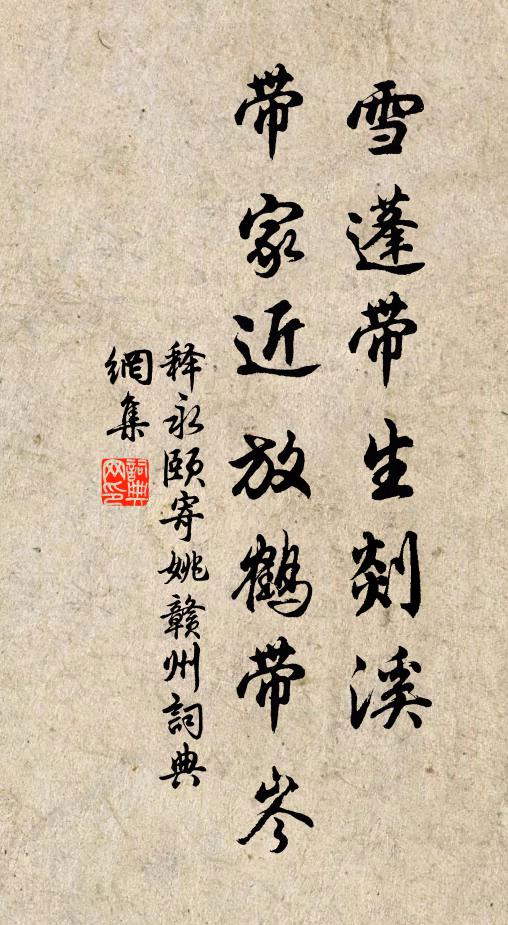 雪蓬带生剡溪
带家近放鹤带岑
释永颐寄姚赣州词典
網集
詞典網印